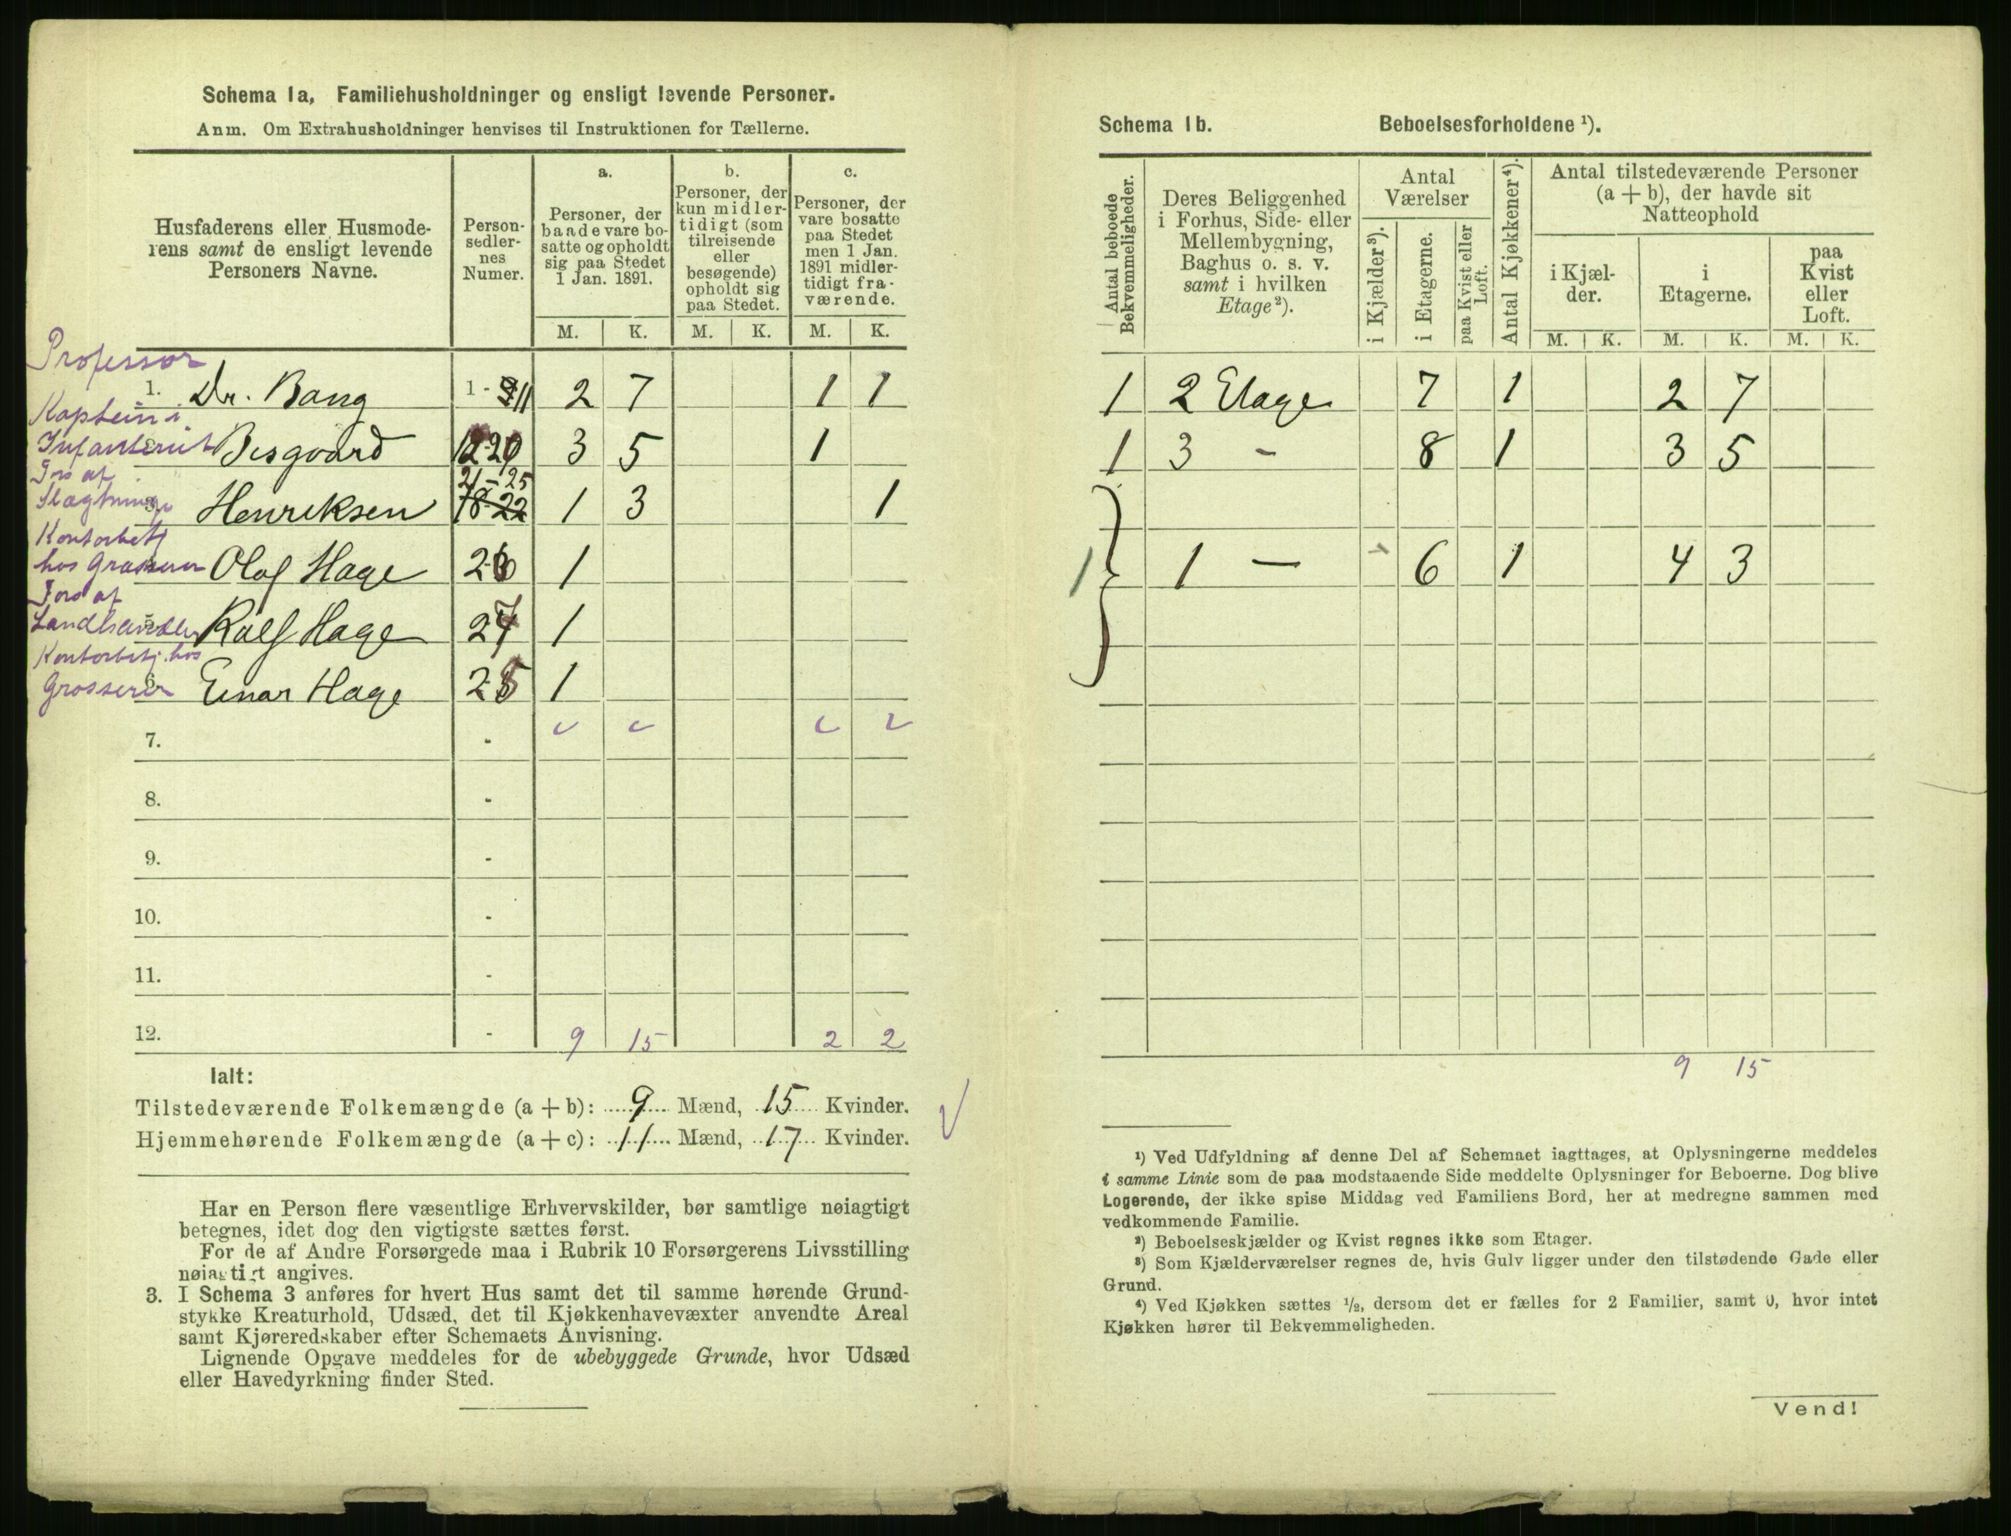 Schema 1a, Familiehusholdninger og ensligt levende Personer.
Anm. Om Extrahusholdninger henvises til Instruktionen for Tællerne.
Husfaderens eller Husmode-
rens samt de ensligt levende
Personers Navne.
Person-
sedler-
nes
Numer.
a.
Personer, der
baade vare bo-
satte og opholdt
sig paa Stedet
1 Jan. 1891.
b.
Personer, der
kun midler-
tidigt (som
tilreisende
eller
besøgende)
opholdt sig
paa Stedet.
c.
Personer, der
vare bosatte
paa Stedet
men 1 Jan.
1891 midler-
tidigt fra-
værende.
M. K. M. K. M. K.
Professor
1. Dr. Bang 1 - 11 2 7 1 1
Kaptein i
Infanteriet Bisgaard 12-20 3 5 1
Fors af
21-25
Slægtninge 3. Henriksen 18-22 1 3 1
Kontorbetj
hos Grosserer Olaf Hage 26 1
Fors af
Landhandler 5. Ralf Hage 27 1
Kontorbetj. hos
Grosserer 6. Einar Hage 28 1
7. -
8. -
9. -
10. -
11. -
12. - 9 15 2 2
Ialt:
Tilstedeværende Folkemængde (a + b): 9 Mænd, 15 Kvinder.
Hjemmehørende Folkemængde (a + c): 11 Mænd, 17 Kvinder.
Har en Person flere væsentlige Erhvervskilder, bør samtlige nøiagtigt
betegnes, idet dog den vigtigste sættes først.
For de af Andre Forsørgede maa i Rubrik 10 Forsørgerens Livsstilling
nøiagtigt angives.
3. I Schema 3 anføres for hvert Hus samt det til samme hørende Grund-
stykke Kreaturhold, Udsæd, det til Kjøkkenhavevæxter anvendte Areal
samt Kjøreredskaber efter Schemaets Anvisning.
Lignende Opgave meddeles for de ubebyggede Grunde, hvor Udsæd
eller Havedyrkning finder Sted.
Schema 1b. Beboelsesforholdene ¹).
Antal beboede
Bekvemmeligheder.
Deres Beliggenhed
i Forhus, Side- eller
Mellembygning,
Baghus o. s. v.
samt i hvilken
Etage²).
Antal
Værelser
i Kjælder³).
i Etagerne.
paa Kvist eller
Loft.
Antal Kjøkkener⁴).
Antal tilstedeværende Personer
(a + b), der havde sit
Natteophold
i Kjæl-
der.
i
Etagerne.
paa
Kvist
eller
Loft.
M. K. M. K. M. K.
1 2 Etage 7 1 2 7
1 3 - 8 1 3 5
1 1 - 6 1 4 3
9 15
¹) Ved Udfyldning af denne Del af Schemaet iagttages, at Oplysningerne meddeles
i samme Linie som de paa modstaaende Side meddelte Oplysninger for Beboerne. Dog blive
Logerende, der ikke spise Middag ved Familiens Bord, her at medregne sammen med
vedkommende Familie.
²) Beboelseskjælder og Kvist regnes ikke som Etager.
³) Som Kjælderværelser regnes de, hvis Gulv ligger under den tilstødende Gade eller
Grund.
⁴) Ved Kjøkken sættes ½, dersom det er fælles for 2 Familier, samt 0, hvor intet
Kjøkken hører til Bekvemmeligheden.
Vend!